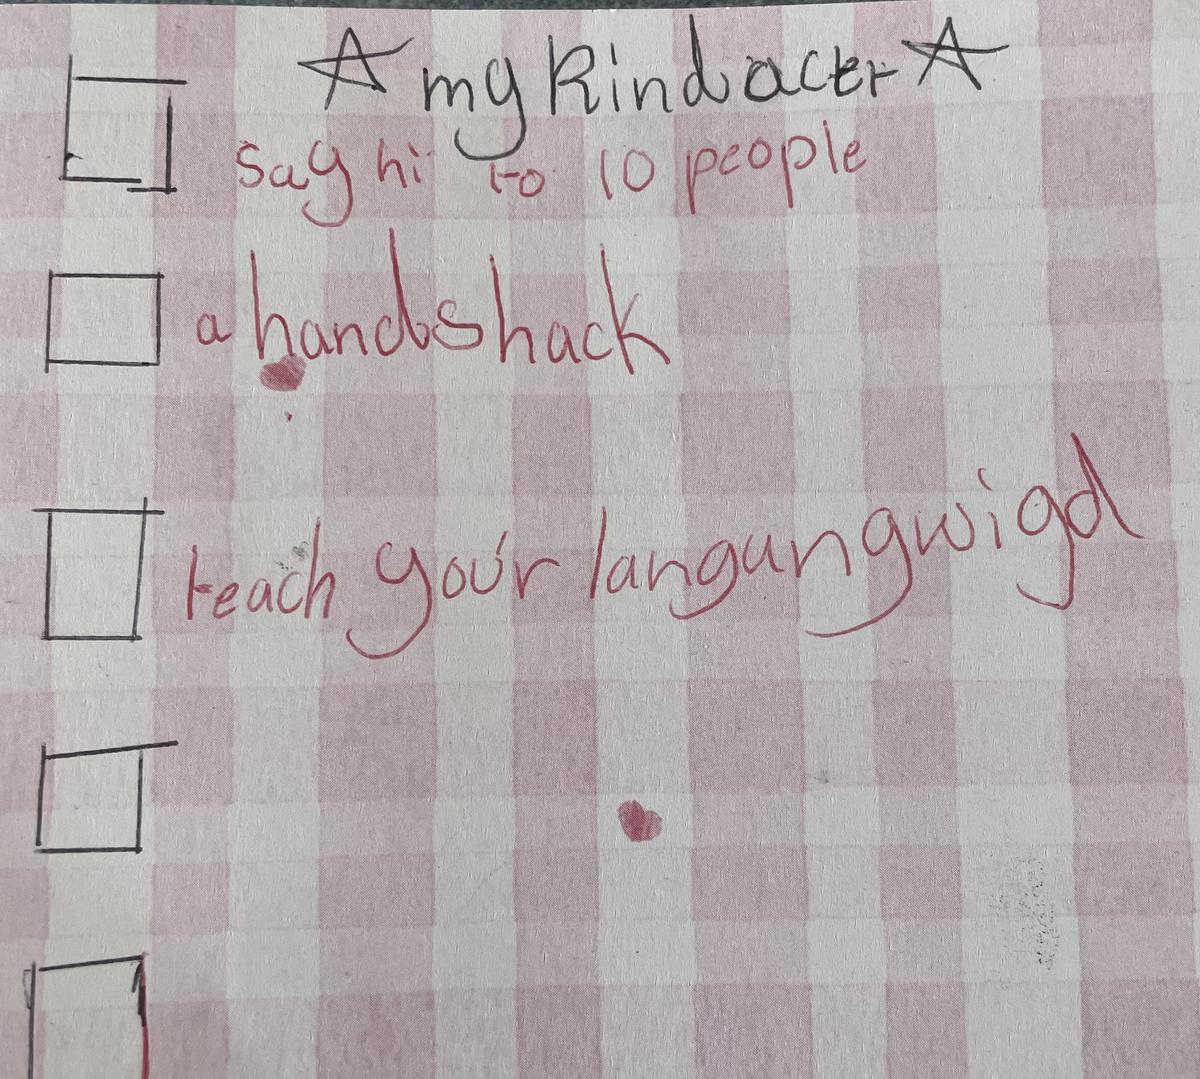 my kind acter
say hi to 10 people
a handshack
teach your langungwigd